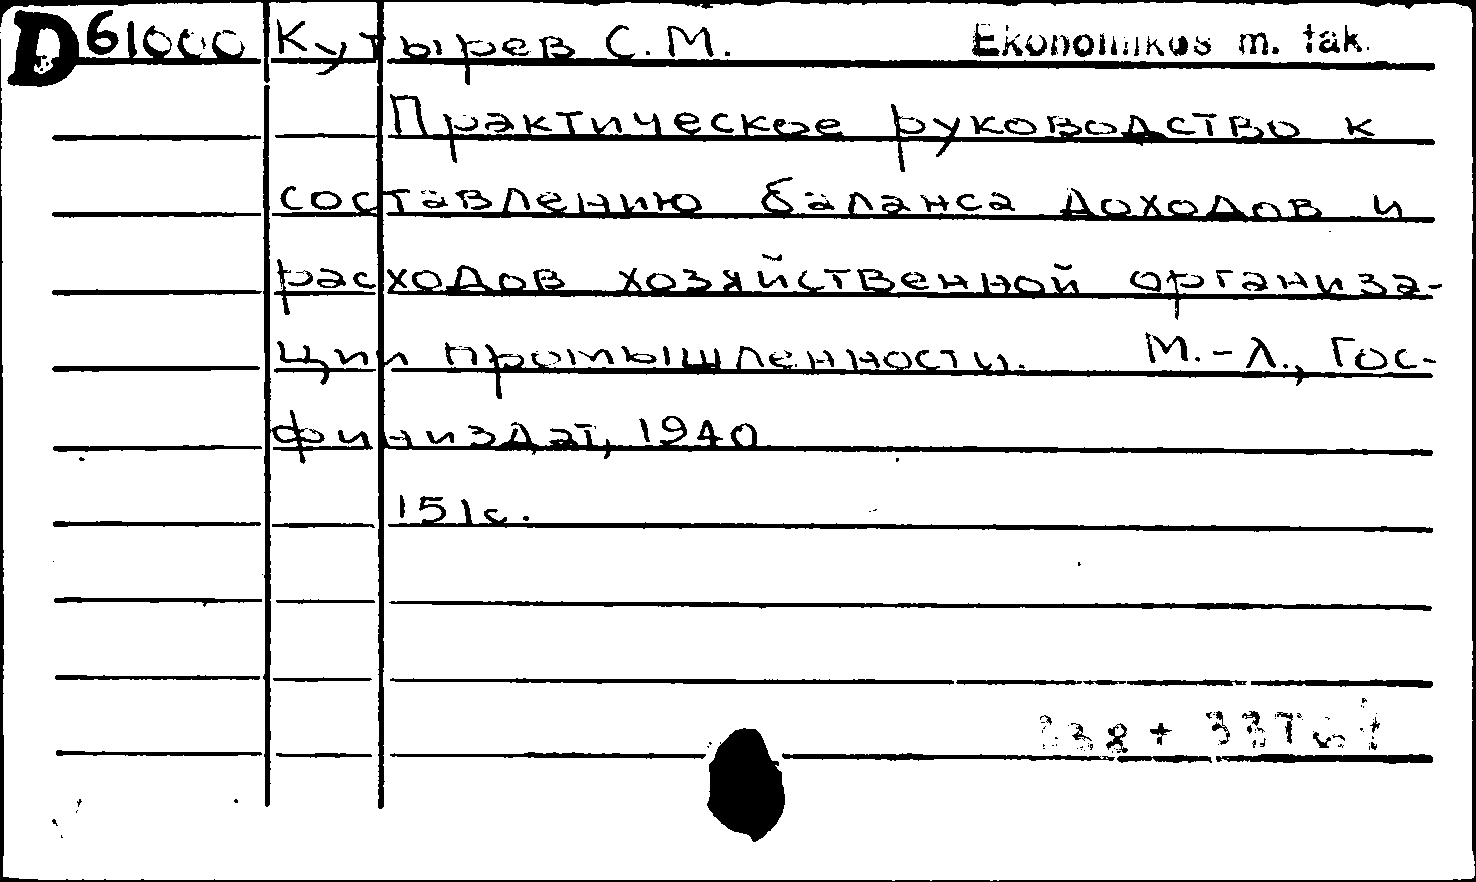 D 61000 Кутырев С.М. Ekonomikos m. fak.
Практическое руководство к
составлению баланса доходов и
расходов хозяйственной организа-
ции промышленности. М.-Л., Гос-
финиздат, 1940
151с.
338 +